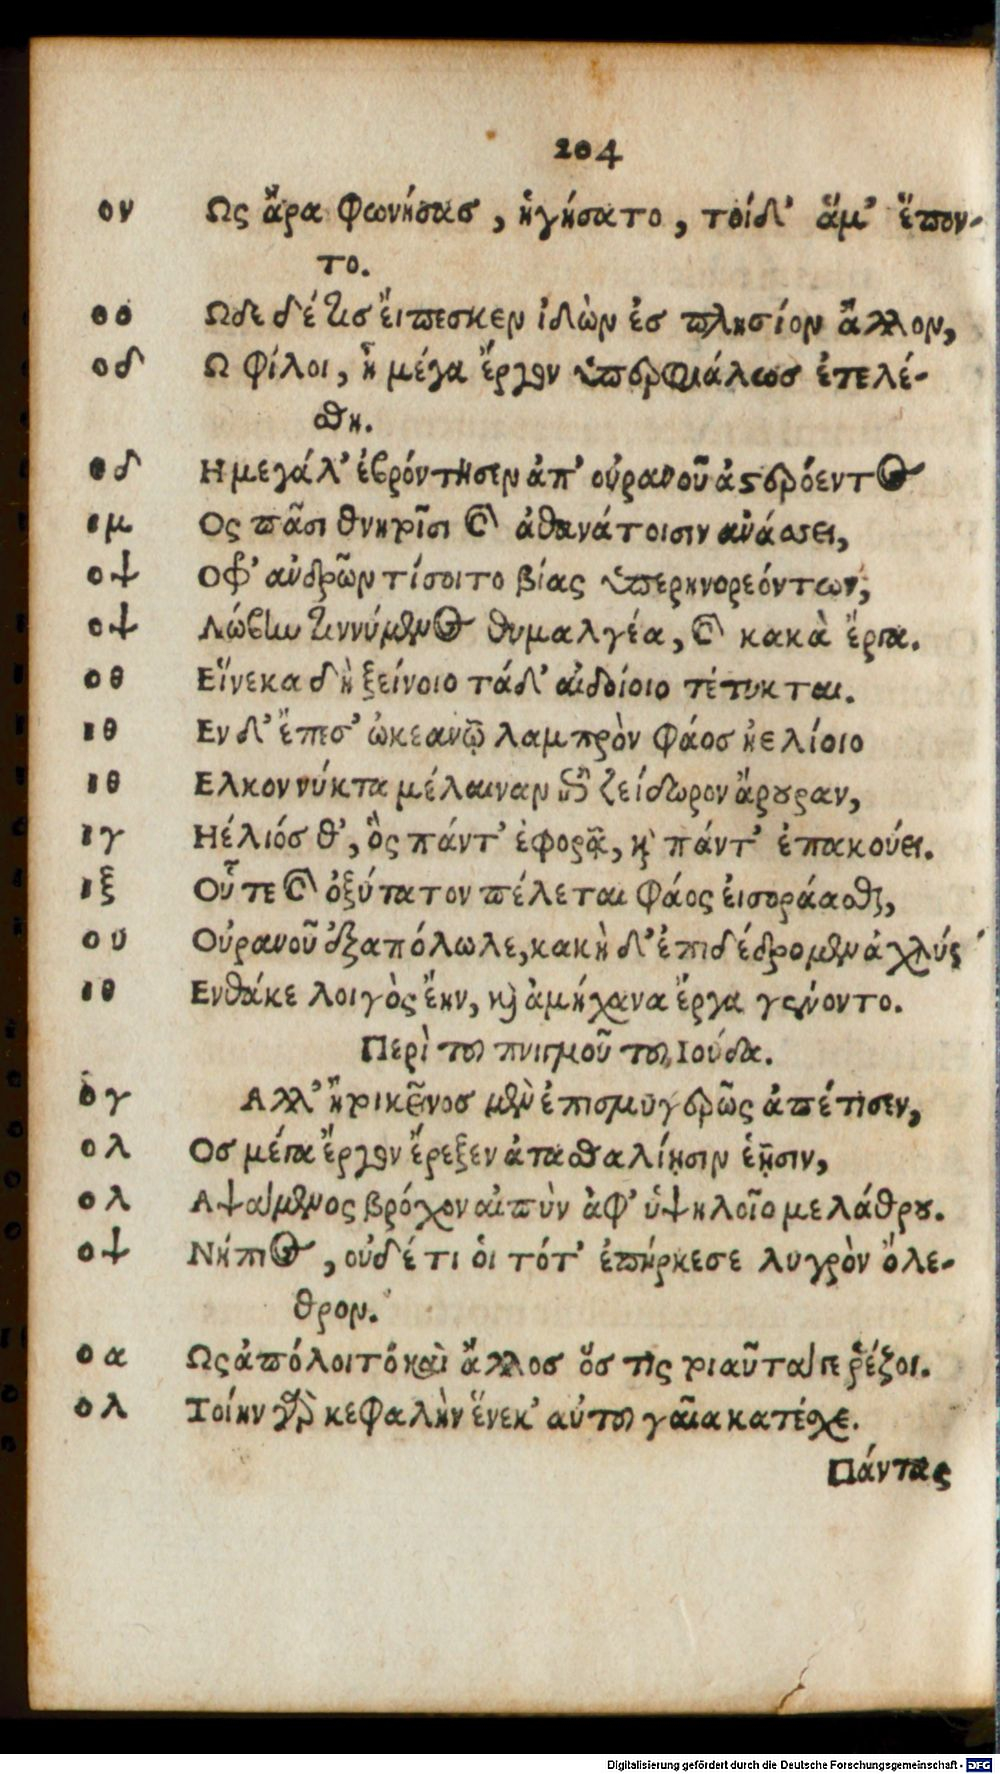 204
ον Ως ἄρα φωνήσας, ἡγήσατο, τοίδ' ἅμ' ἕπον-
το.
οο Ωδε δέ τις εἴπεσκεν ἰδὼν ἐς πλησίον ἄλλον,
οδ Ω φίλοι, ἦ μέγα ἔργον ὑπερφιάλως ἐτελέ-
σθη.
οδ Η μεγάλ' ἐβρόντησεν ἀπ' οὐρανοῦ ἀστερόεντος
ιμ Ος πᾶσι θνητοῖσι καὶ ἀθανάτοισιν ἀνάσσει,
οψ Οφ' ἀνδρῶν τίσοιτο βίας ὑπερηνορεόντων,
οψ Λώβην τιννύμενος θυμαλγέα, καὶ κακὰ ἔργα.
οθ Εἵνεκα δὴ ξείνοιο τάδ' αἰδοίοιο τέτυκται.
ιθ Εν δ' ἔπεσ' ὠκεανῷ λαμπρὸν φάος ἠελίοιο
ιθ Ελκον νύκτα μέλαιναν ἐπὶ ζείδωρον ἄρουραν,
ιγ Ηέλιός θ', ὃς πάντ' ἐφορᾷ, καὶ πάντ' ἐπακούει.
ιξ Οὗ τε καὶ ὀξύτατον πέλεται φάος εἰσοράασθαι,
ου Οὐρανοῦ ἐξαπόλωλε, κακὴ δ' ἐπιδέδρομεν ἀχλύς
ιθ Ενθάκε λοιγὸς ἔην, καὶ ἀμήχανα ἔργα γένοντο.
Περὶ τοῦ πνιγμοῦ τοῦ Ιούδα.
ογ Αλλ' ἤτοι κεῖνος μὲν ἐπισμυγερῶς ἀπέτισεν,
ολ Ος μέγα ἔργον ἔρεξεν ἀτασθαλίῃσιν ἑῇσιν,
ολ Αψάμενος βρόχον αἰπὺν ἀφ' ὑψηλοῖο μελάθρου.
οψ Νήπιος, οὐδέ τι οἱ τότ' ἐπήρκεσε λυγρὸν ὄλε-
θρον.
οα Ως ἀπόλοιτο καὶ ἄλλος ὅς τις τοιαῦτά γε ῥέζοι.
ολ Τοίην γὰρ κεφαλὴν ἕνεκ' αὐτοῦ γαῖα κατέσχε.
Πάντας
Digitalisierung gefördert durch die Deutsche Forschungsgemeinschaft - DFG